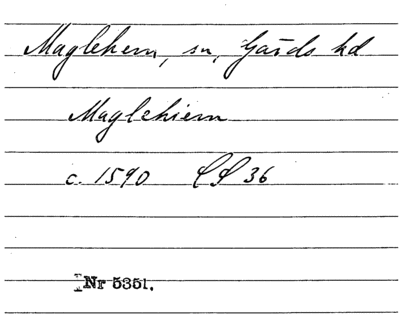 Maglehem, sn, Gärds hd
Maglehiem
c. 1590 36
Nr 5351.